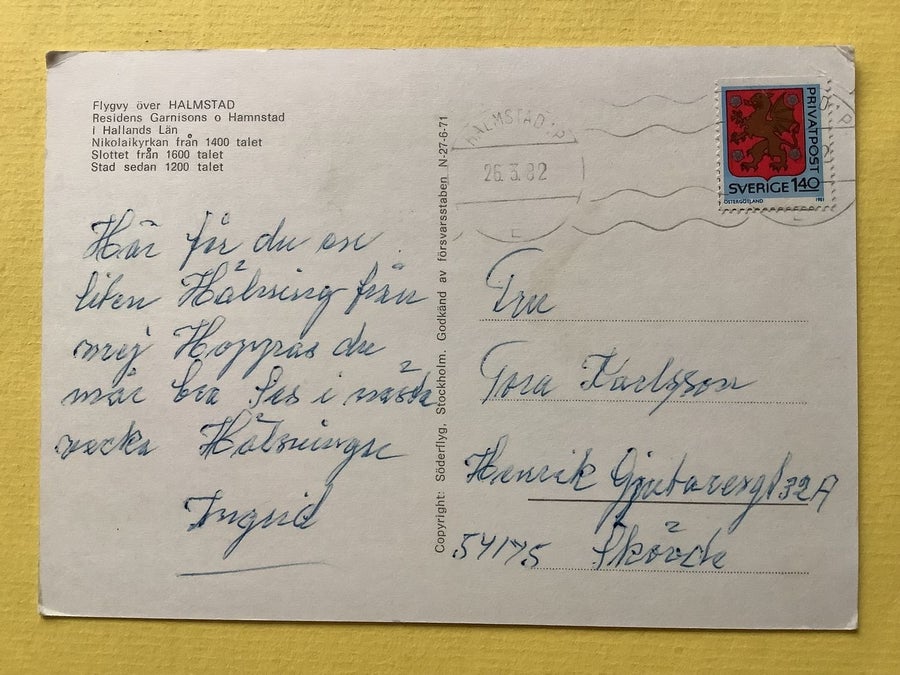 Flygvy över HALMSTAD
Residens Garnisons o Hamnstad
i Hallands Län
Nikolaikyrkan från 1400 talet
Slottet från 1600 talet
Stad sedan 1200 talet
Här får du en
liten Hälsning från
mej Hoppas du
mår bra Ses i nästa
vecka Hälsningar
Ingrid
Copyright: Söderflyg, Stockholm. Godkänd av försvarsstaben N-27-6-71
HALMSTAD 1P
26.3.82
L
PRIVATPOST
SVERIGE 140
ÖSTERGÖTLAND 1981
Fru
Tora Karlsson
Henrik 32A
54145 Skövde